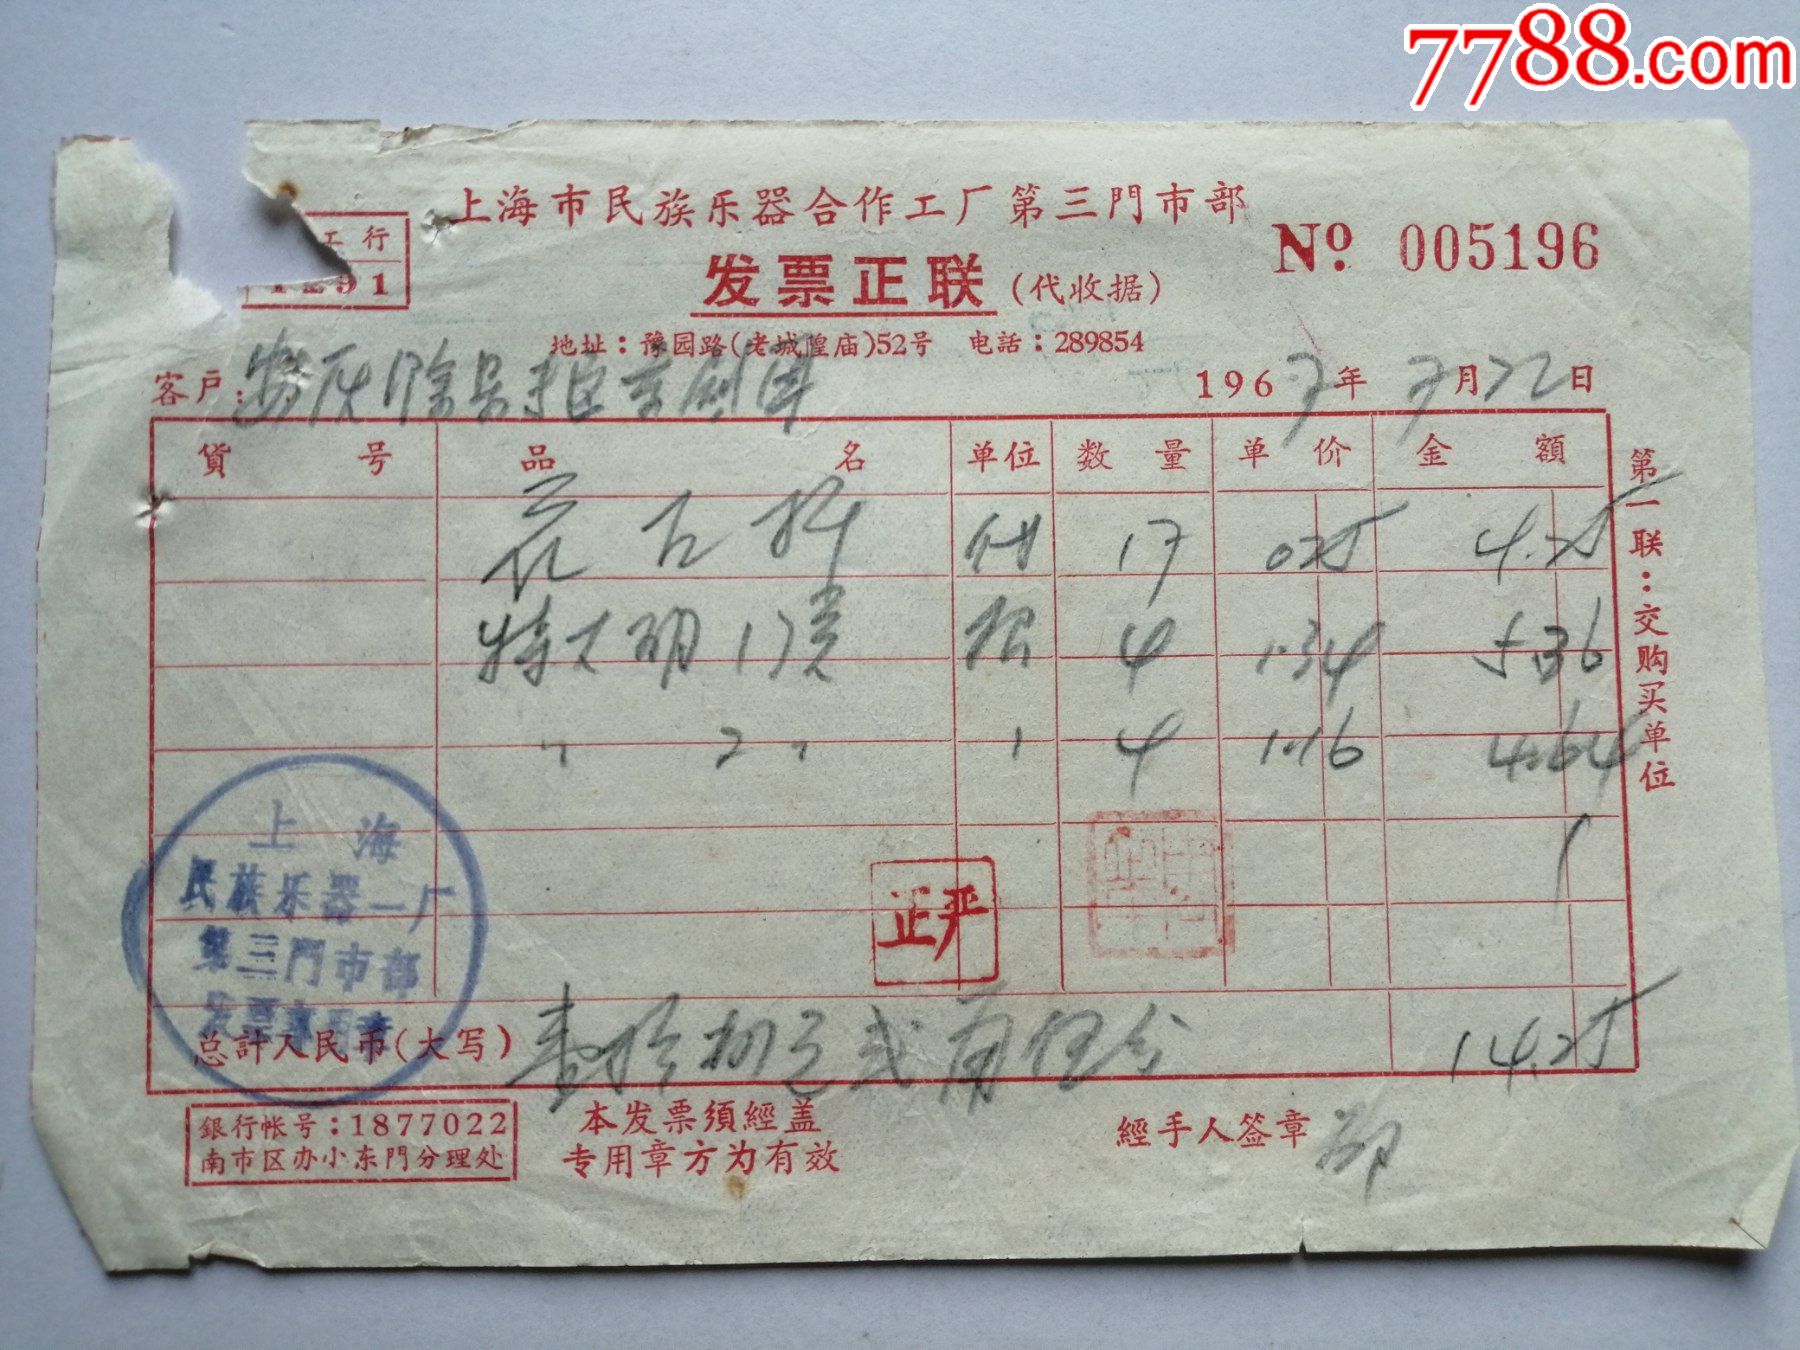 7788.com
上海市民族乐器合作工厂第三門市部
工行
1291
发票正联(代收据)
№ 005196
地址：豫园路(老城隍庙)52号 电話：289854
客户：
1967年7月22日
貨号 品名 单位 数量 单价 金額
17 025 4.25
特大胡 根 4 1.34 5.36
〃 2 〃 〃 4 1.16 4.64
上海
民族乐器一厂
第三門市部
发票专用章
正严
总計人民币(大写) 壹拾 元弍角伍分 14.25
銀行帐号：1877022
南市区办小东門分理处
本发票須經盖
专用章方为有效
經手人签章 邵
第一联：交购买单位